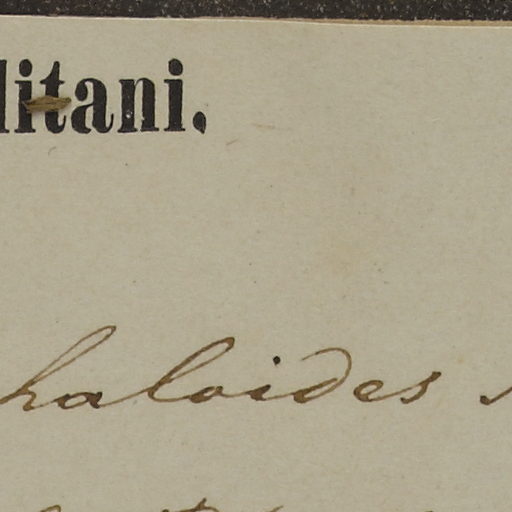 litani.
haloides